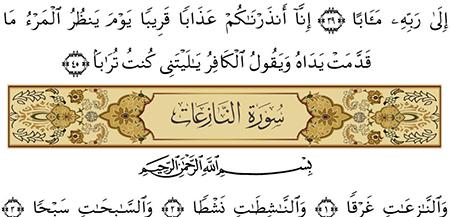 إِلَىٰ رَبِّهِۦ مَـَٔابًا ﴿٣٩﴾ إِنَّآ أَنذَرْنَـٰكُمْ عَذَابًا قَرِيبًا يَوْمَ يَنظُرُ ٱلْمَرْءُ مَا
قَدَّمَتْ يَدَاهُ وَيَقُولُ ٱلْكَافِرُ يَـٰلَيْتَنِى كُنتُ تُرَٰبًۢا ﴿٤٠﴾
سُورَةُ النَّازِعَاتِ
بِسْمِ ٱللَّهِ ٱلرَّحْمَـٰنِ ٱلرَّحِيمِ
وَٱلنَّـٰزِعَـٰتِ غَرْقًا ﴿١﴾ وَٱلنَّـٰشِطَـٰتِ نَشْطًا ﴿٢﴾ وَٱلسَّـٰبِحَـٰتِ سَبْحًا ﴿٣﴾